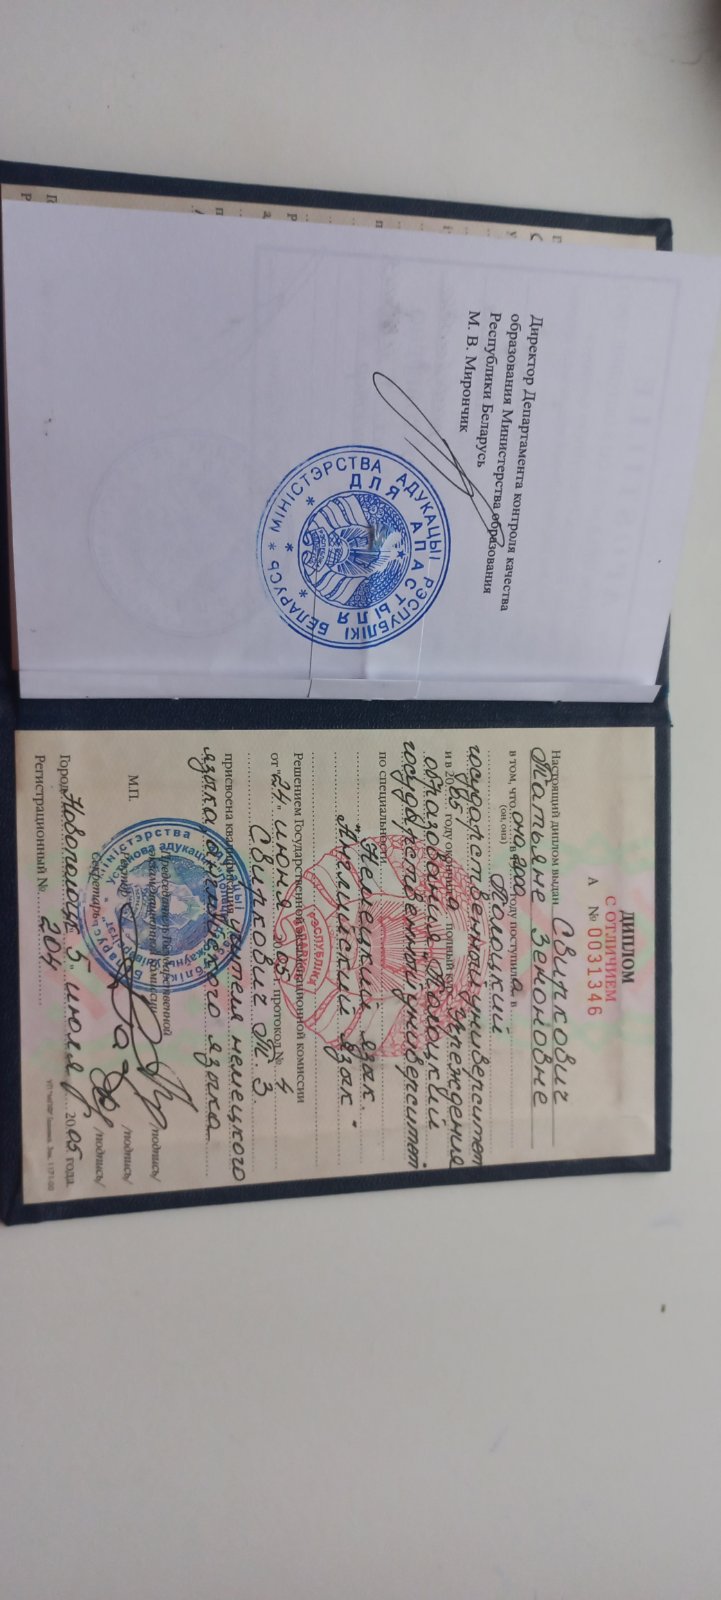 Директор Департамента контроля качества
образования Министерства образования
Республики Беларусь
М. В. Мирончик
МІНІСТЭРСТВА АДУКАЦЫІ РЭСПУБЛІКІ БЕЛАРУСЬ
ДЛЯ АПАСТЫЛЯ
ДИПЛОМ
С ОТЛИЧИЕМ
А № 0031346
Настоящий диплом выдан Свиркович
Татьяне Зеноновне
в том, что она в 200 году поступила в
(он, она)
Полоцкий
государственный университет
и в 2005 году окончила полный курс Учреждения
образования "Полоцкий
государственный университет"
по специальности
"Немецкий язык.
Английский язык".
Решением Государственной экзаменационной комиссии
от "24" июня 2005 г. протокол № 4
Свиркович Т. З.
присвоена квалификация учителя немецкого
языка, английского языка
М.П.
Председатель Государственной
экзаменационной комиссии /подпись/
Ректор /подпись/
Секретарь /подпись/
Город Новополоцк "5" июля 2005 года.
Регистрационный № 204